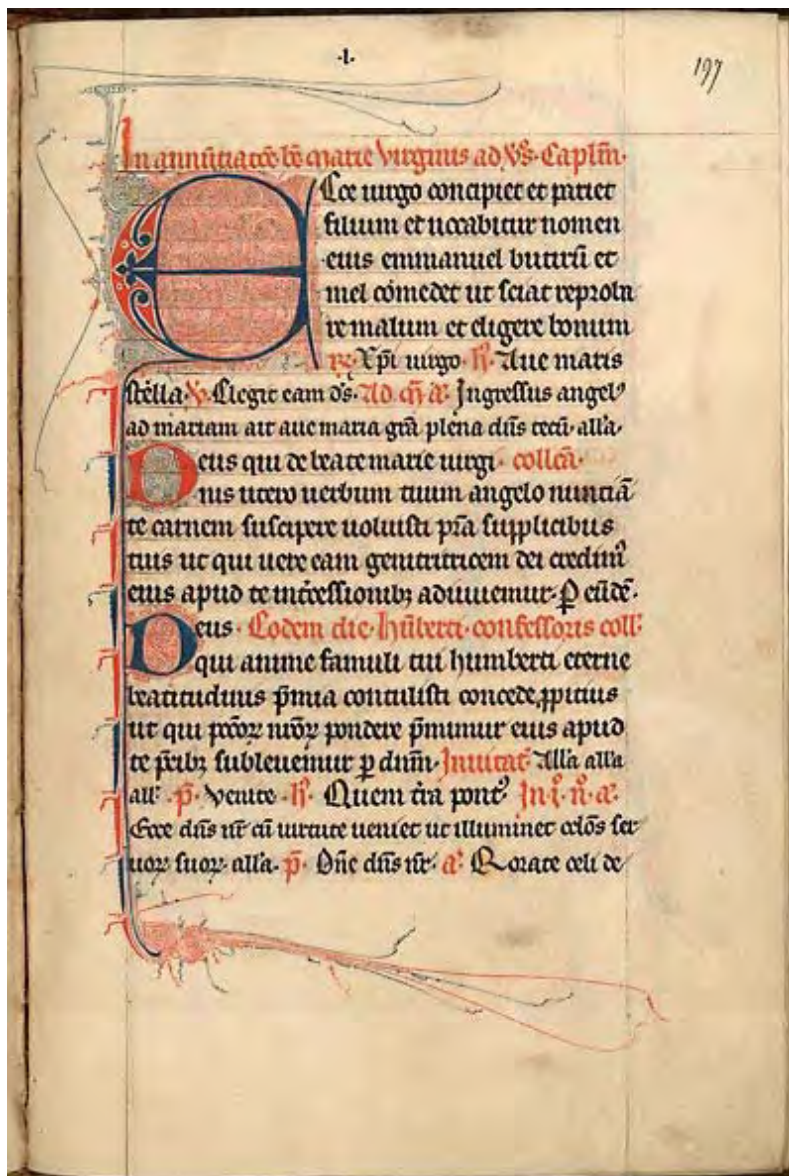 ·l·
197
In annūtiatōe bē marie virginis ad vs̄. Caplm̄.
Ecce uirgo concipiet et pariet
filium et uocabitur nomen
eius emmanuel butirū et
mel comedet ut sciat reproba
re malum et eligere bonum
R Xp̄i uirgo h̄. Aue maris
stella. V. Elegit eam dn̄s. Ad m̄ a. Ingressus angelꝰ
ad mariam ait aue maria grā plena dn̄s tecū. all'a.
Deus qui de beate marie uirgi collcā.
nis utero uerbum tuum angelo nunciā
te carnem suscipere uoluisti pr̄a supplicibus
tuis ut qui uere eam genitricem dei credimꝰ
eius apud te intercessionibꝫ adiuuemur. P eūdē.
Deus. Eodem die. hūberti. confessoris coll'.
qui anime famuli tui humberti eterne
beatitudinis p̄mia contulisti concede ꝓpitius
ut qui pccōꝝ nrōꝝ pondere p̄mimur eius apud
te p̄cibꝫ subleuemur ꝑ dnm̄. Inuitat'. All'a all'a
all'. p̄. Venite. h̄. Quem t̄ra pont'. In i°. n°. a'.
Ecce dn̄s nr̄ cū uirtute ueniet ut illuminet oclōs ser
uoꝝ suoꝝ. all'a. p̄. Dn̄e dn̄s nr̄. a'. Rorate celi de